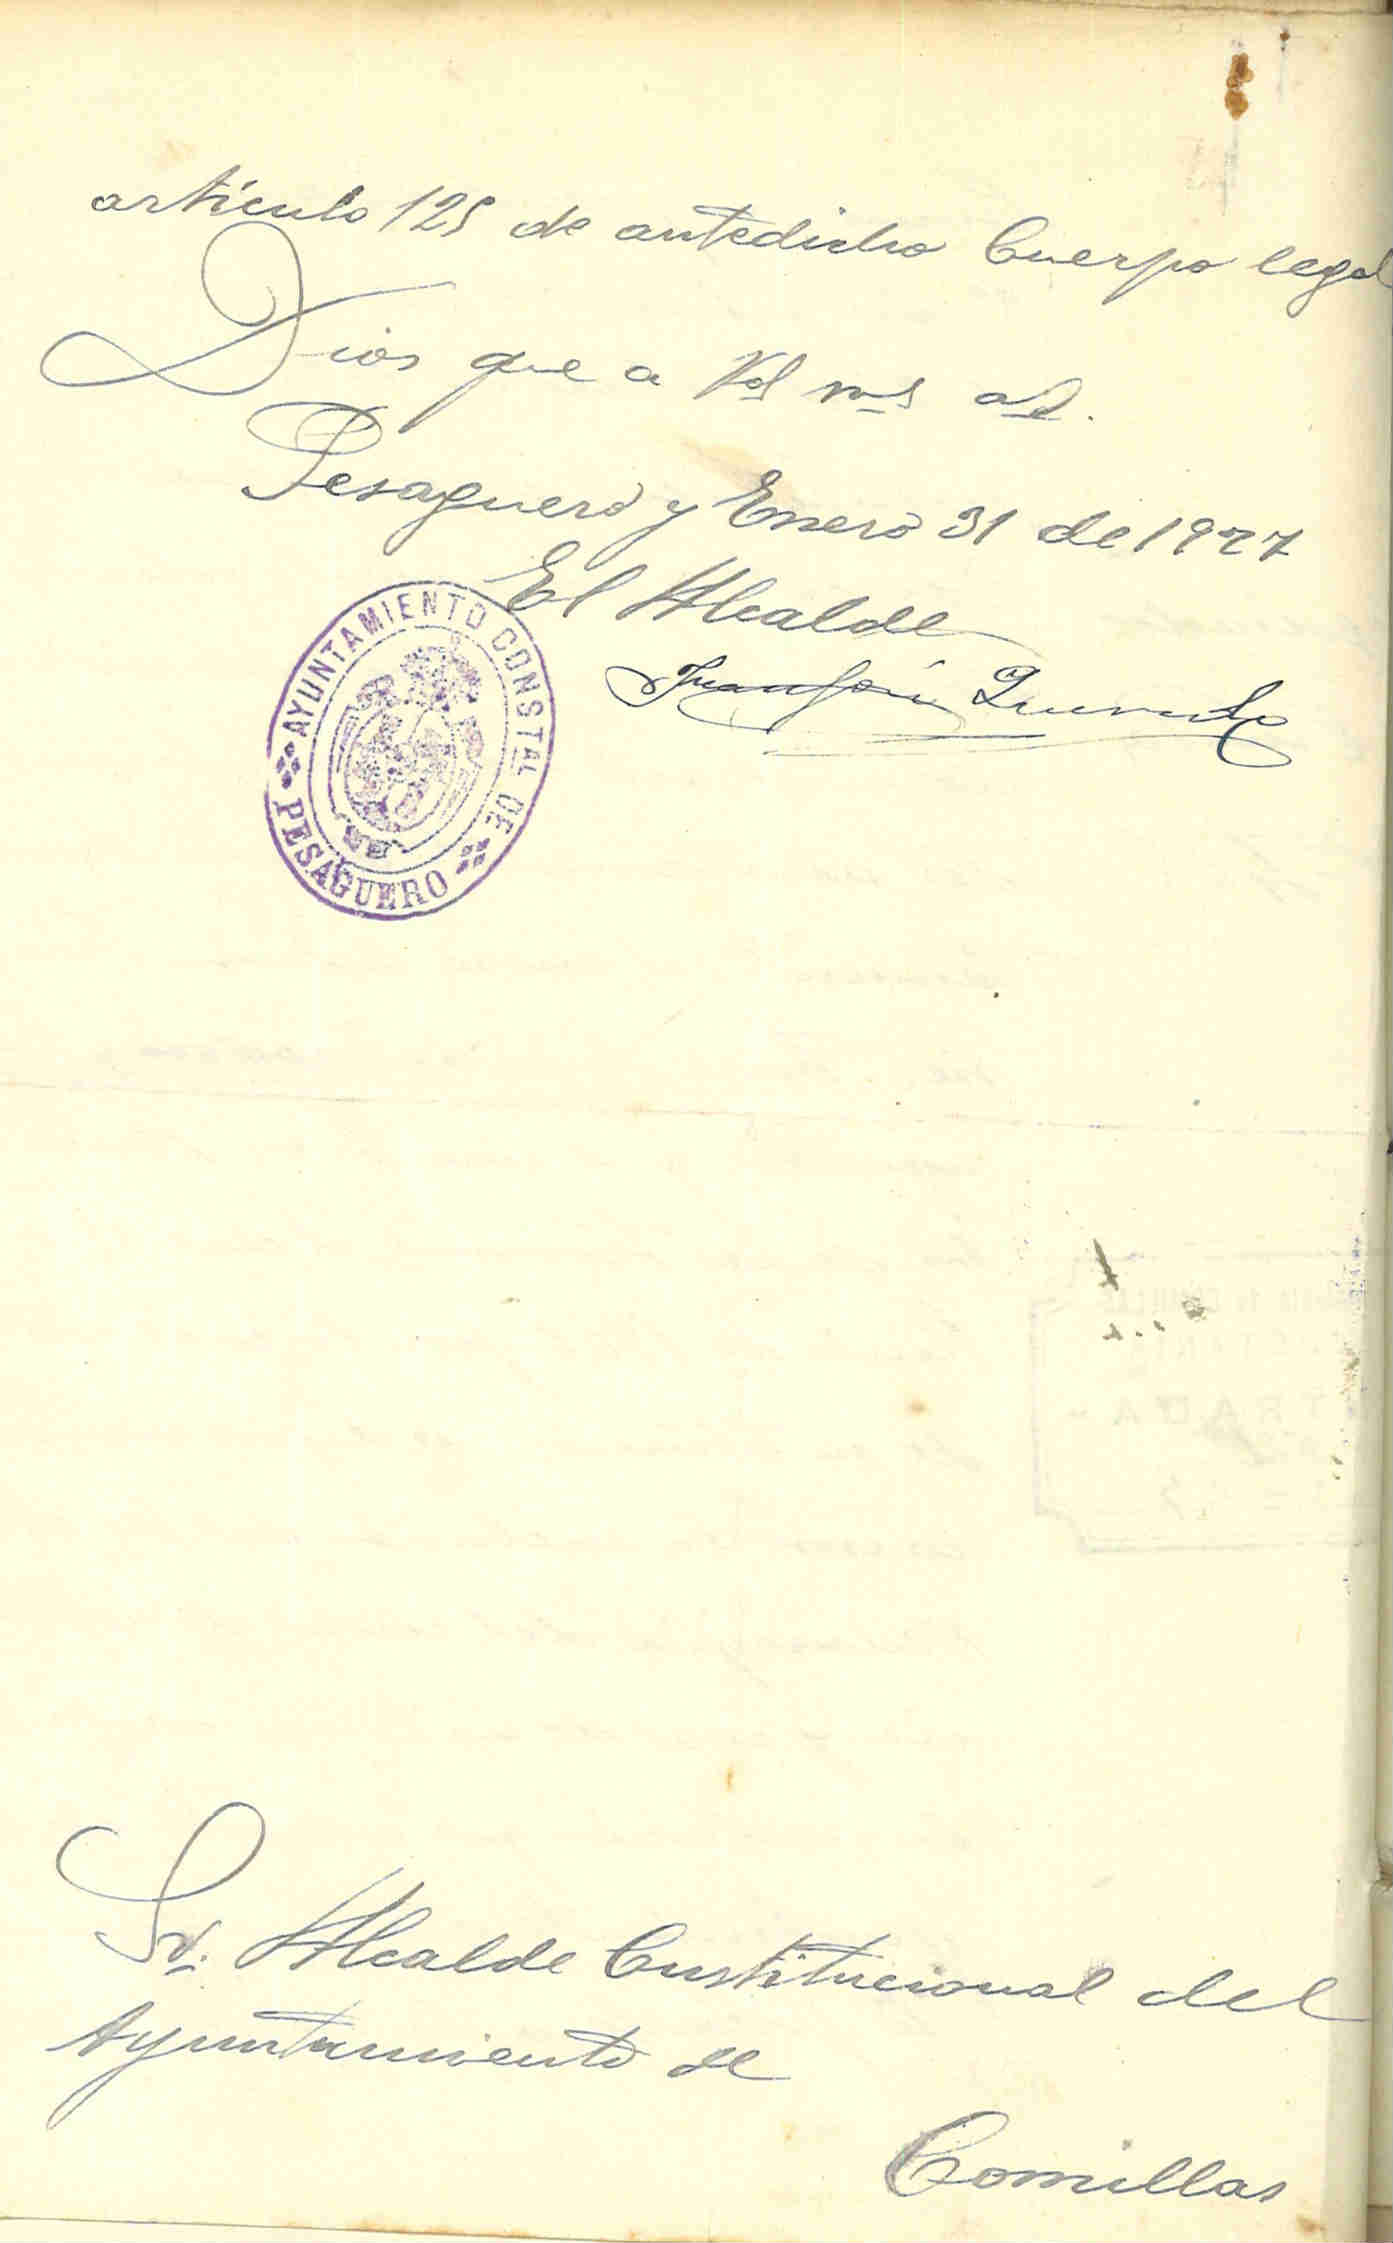 artículo 125 de antedicho Cuerpo legal
Dios gue a Vd ms as.
Pesaguero y Enero 31 de 1927
El Alcalde
AYUNTAMIENTO CONSTAL DE
PESAGUERO
Sr. Alcalde Constitucional del
Ayuntamiento de
Comillas